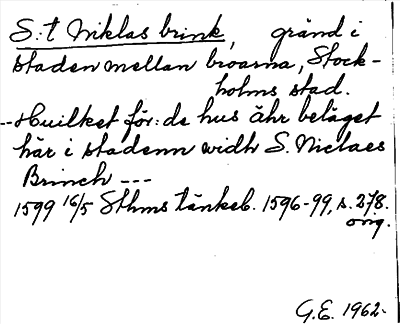 S:t Niklas brink, gränd i
staden mellan broarna, Stock-
holms stad.
--Huilket för:de hus ähr beläget
här i stadenn widh S. Niclaes
Brinch ---
1599 16/5 Sthms tänkeb. 1596-99, s. 278.
orig.
G.E. 1962.